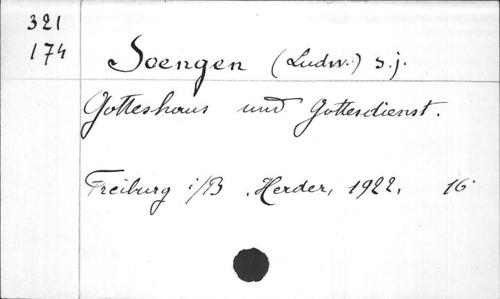 321
174
Soengen (Ludw.) s.j.
Gotteshaus und Gottesdienst.
Freiburg i/B. Herder, 1922, 16°